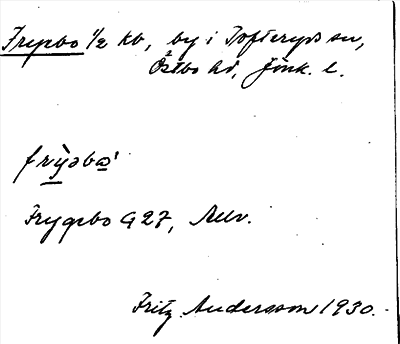 Frysbo ½ kb, by i Tofteryds sn,
Östbo hd, Jönk. l.
frỳsbo'
Frygsbo G 27, Relv.
Fritz Andersson 1930.